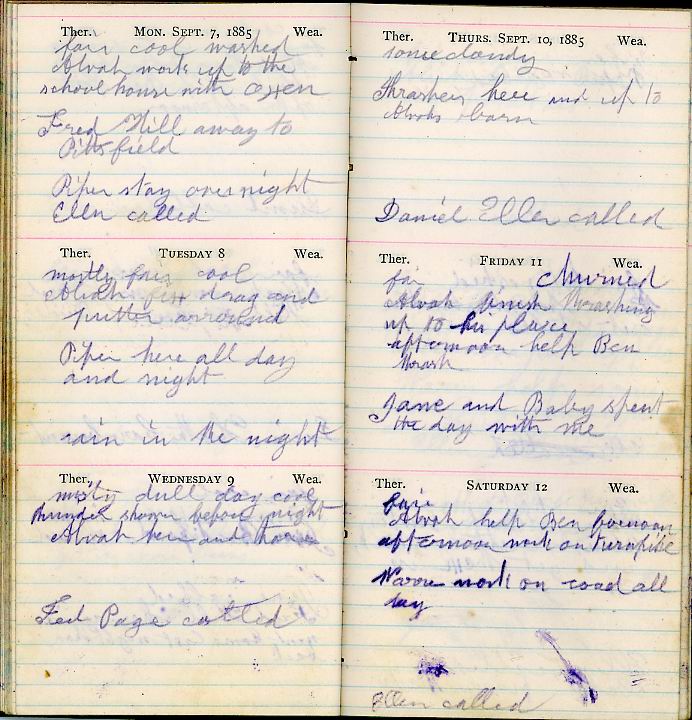 Ther. MON. SEPT. 7, 1885 Wea.
fair cool washed
Alvah work up to the
school house with oxen
Fred Hill away to
Pittsfield
Piper stay over night
Ellen called
Ther. TUESDAY 8 Wea.
mostly fair cool
Alvah fix drag and
putter arround
Piper here all day
and night
rain in the night
Ther. WEDNESDAY 9 Wea.
misty dull day cool
thunder shower before night
Alvah here and there
Fed Page called
Ther. THURS. SEPT. 10, 1885 Wea.
some cloudy
Thrashers here and up to
Alvahs barn
Daniel Ellen called
Ther. FRIDAY 11 Wea.
fair churned
Alvah finish thrashing
up to his place
afternoon help Ben
thrash
Jane and Baby spent
the day with me
Ther. SATURDAY 12 Wea.
fair
Alvah help Ben forenoon
afternoon work on turnpike
work on road all
day
Ellen called